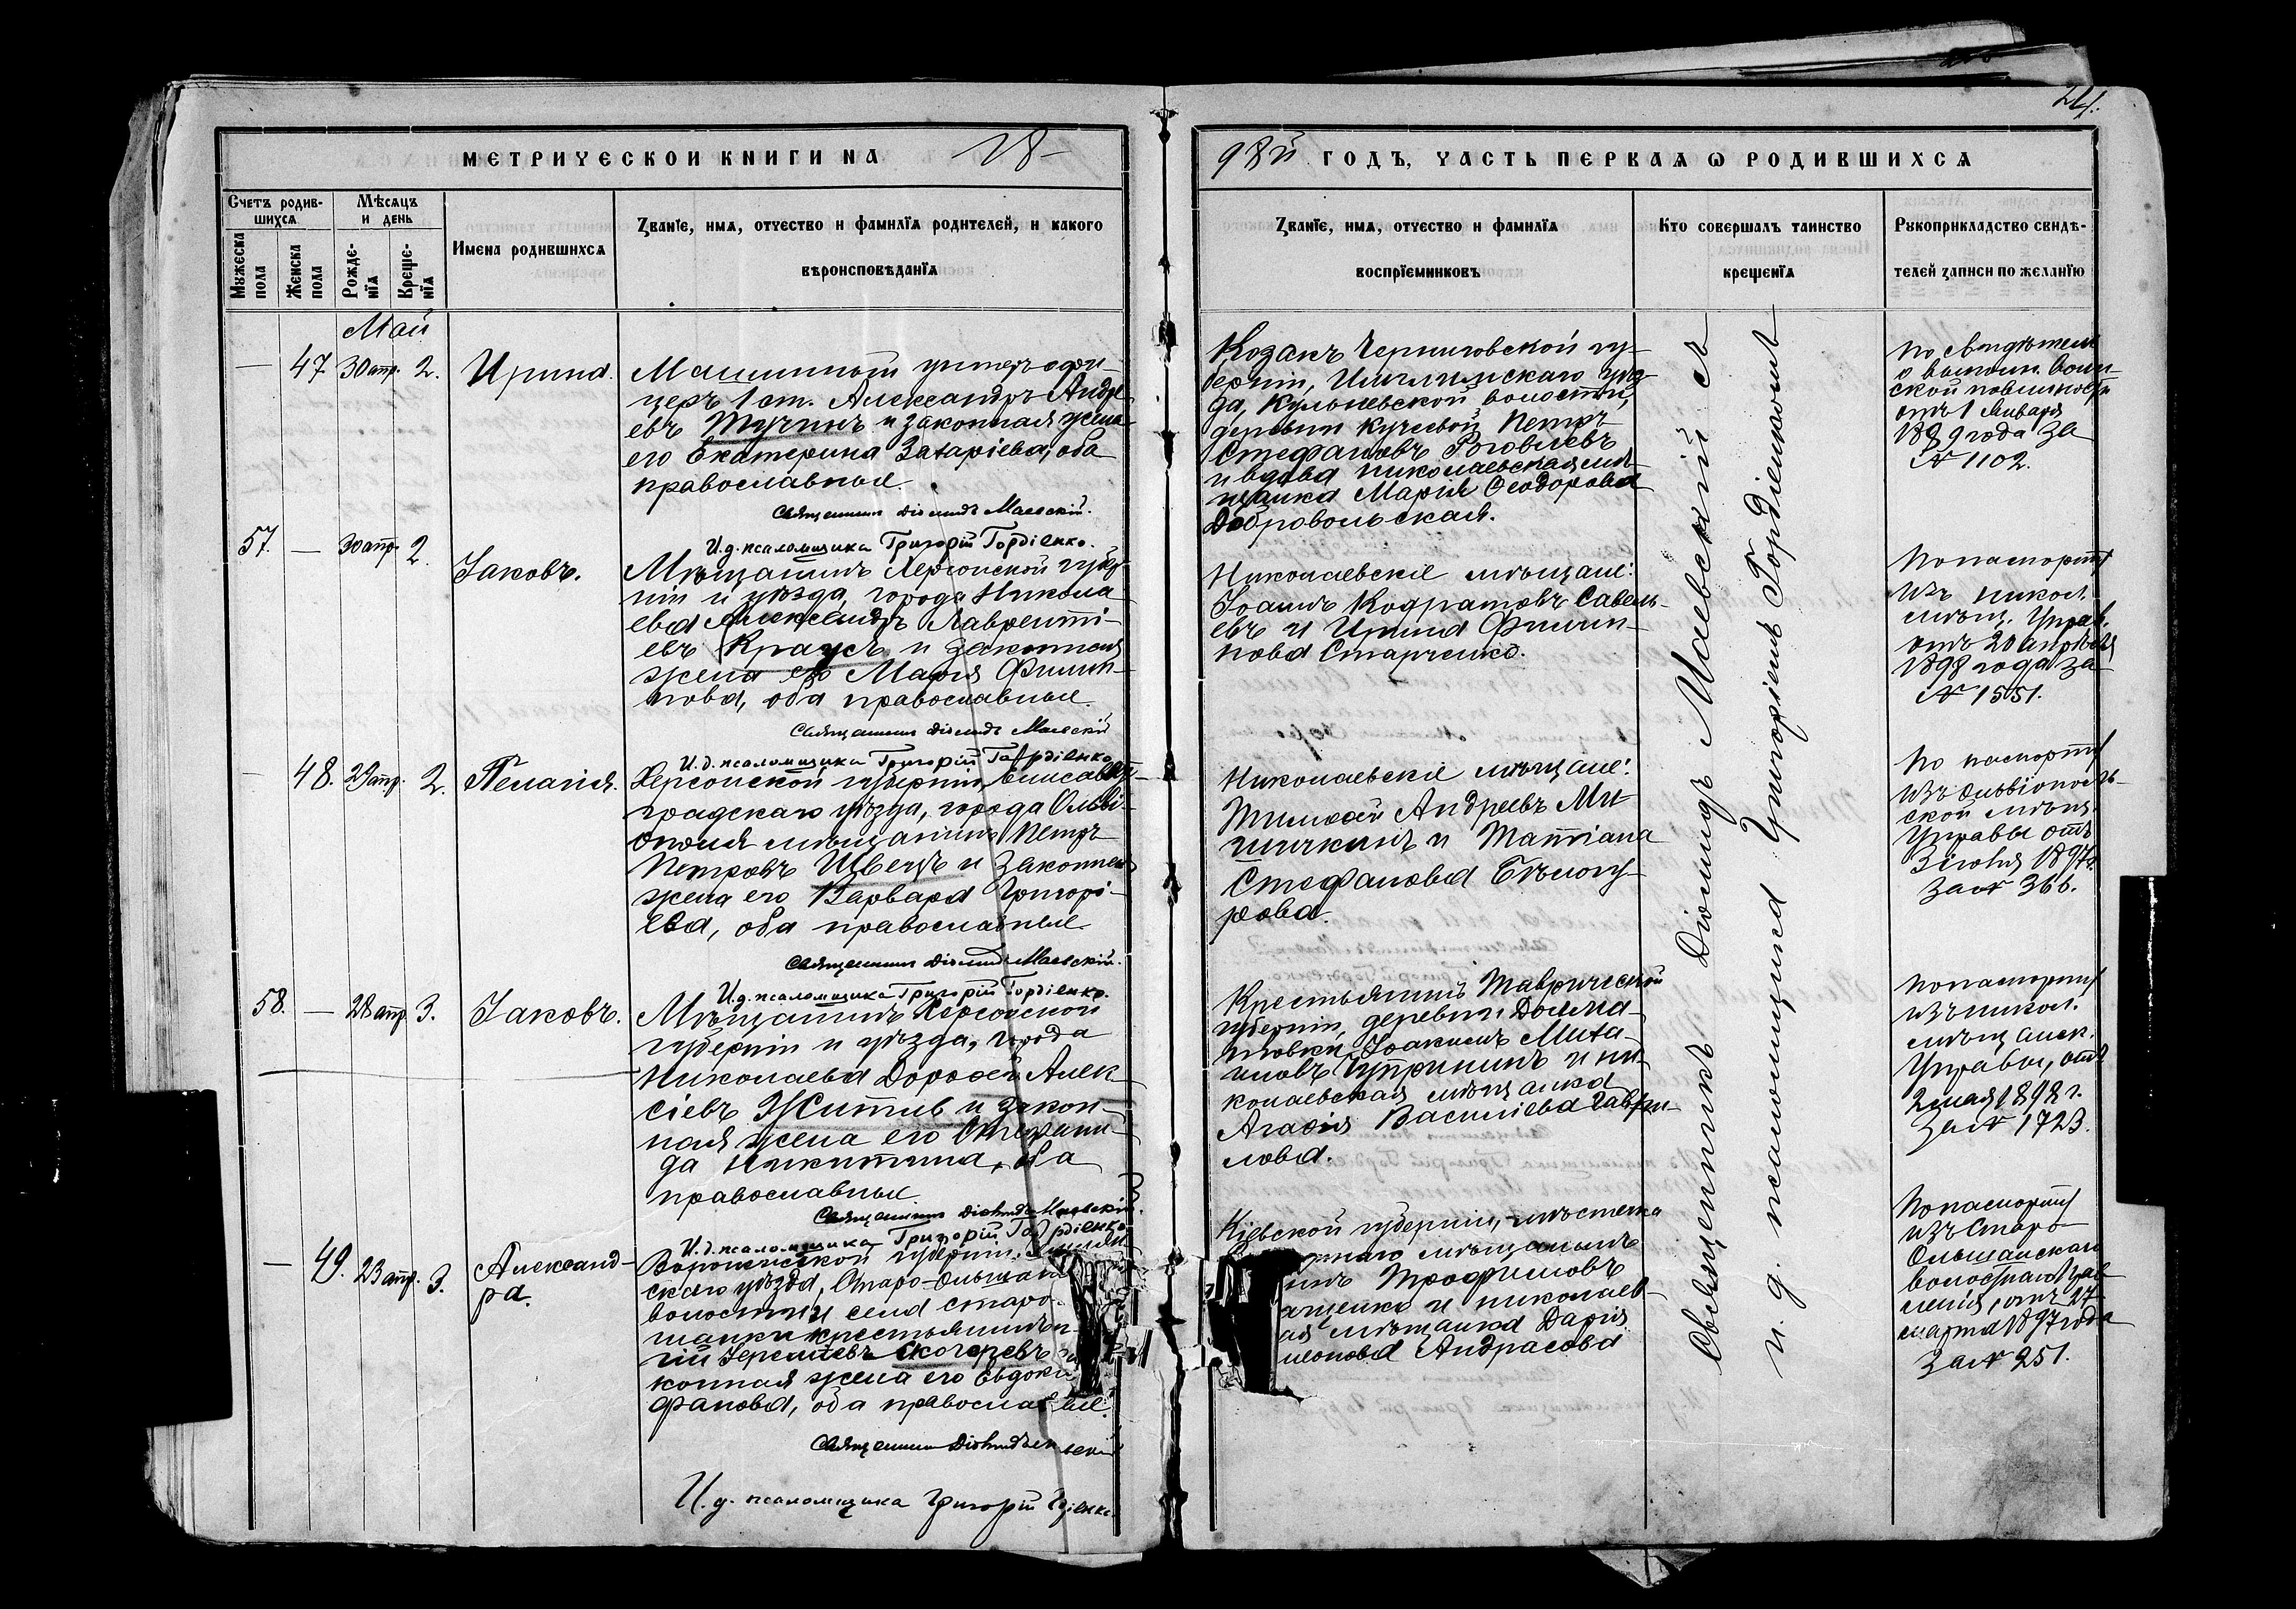 24.
МЕТРИЧЕСКОЙ КНИГИ НА 18-
98й ГОДЪ, ЧАСТЬ ПЕРВАЯ Ѡ РОДИВШИХСЯ
Счетъ родив-
шихся
Мужеска пола
Женска пола
Мѣсяцъ
и день
Рожде-
нїя
Креще-
нїя
Имена родившихся
Званїе, имя, отчество и фамилїя родителей, и какого
вѣроисповѣданїя
Званїе, имя, отчество и фамилїя
воспрїемниковъ
Кто совершалъ таинство
крещенїя
Рукоприкладство свидѣ-
телей записи по желанїю
Май
— 47 30 апр. 2. Ирина.
Машинный унтеръ офи-
церъ 1 ст. Александръ Андре-
евъ Тучинъ и законная жена
его Екатерина Захаріева, оба
православные.
Священникъ Діомидъ Маевскій.
И.д. псаломщика Григорій Гордіенко.
Козакъ Черниговской гу-
берніи, уѣз-
да, волости,
деревни Петръ
Стефановъ
и вдова николаевская мѣ-
щанка Марія Ѳеодорова
Добровольская.
по свидѣтел.
о выполн. воин-
ской повинности
отъ 1 Января
1889 года за
№ 1102.
57. — 30 апр. 2. Іаковъ.
Мѣщанинъ Херсонской губер-
ніи и уѣзда, города Никола-
ева Александръ Лавренті-
евъ Краусъ и законная
жена его Марія Филип-
пова, оба православные.
Священникъ Діомидъ Маевскій
И.д. псаломщика Григорій Гордіенко
Николаевскіе мѣщане:
Іоаннъ Кодратовъ Савель-
евъ и Ирина Филип-
пова Старченко.
По паспорту
изъ никол.
мѣщ. Управ.
отъ 20 апрѣля
1898 года за
№ 1551.
— 48. 29 апр. 2. Пелагія.
Херсонской губерніи, Елисавет-
градскаго уѣзда, города Ольві-
ополя мѣщанинъ Петръ
Петровъ Швецъ и законная
жена его Варвара Григорі-
ева, оба православные.
Священникъ Діомидъ Маевскій.
И.д. псаломщика Григорій Гордіенко.
Николаевскіе мѣщане:
Тимоѳей Андреевъ Ми-
и Татіана
Стефанова Бѣлоку-
рова.
По паспорту
изъ Ольвіополь-
ской мѣщ.
Управы отъ
3 іюня 1897 г.
за № 366.
58. — 28 апр. 3. Іаковъ.
Мѣщанинъ Херсонской
губерніи и уѣзда, города
Николаева Дороѳей Алек-
сіевъ Житнев и закон-
ная жена его Стефани-
да Никитина, оба
православные.
Священникъ Діомидъ Маевскій.
И.д. псаломщика Григорій Гордіенко
Крестьянинъ Таврической
губерніи, деревни Долма-
товки Іоакимъ Миха-
иловъ Чупринин и ни-
колаевская мѣщанка
Агаѳія Василіева Гаври-
лова.
По паспорту
изъ никол.
мѣщанск.
Управы, отъ
2 мая 1898 г.
за № 1723.
— 49. 23 апр. 3. Александ-
ра.
Воронежской губерніи,
скаго уѣзда, Старо-Ольшан
волости и села Старо-
шанки крестьянинъ
гій Іереміевъ Скочеревъ за
конная жена его Евдокі
фанова, оба православные.
Священникъ Діомидъ
И. д. псаломщика Григорій
Кіевской губерніи, мѣстечка
мѣщанинъ
Трофимовъ
и николаев-
ая мѣщанка Дарія
Андрасова
По паспорту
изъ Старо-
Ольшанскаго
волостнаго Прав-
ленія, отъ 17
марта 1897 года
за № 251.
Священникъ Діомидъ Маевскій съ
и. д. псаломщика Григоріемъ Гордіенкомъ